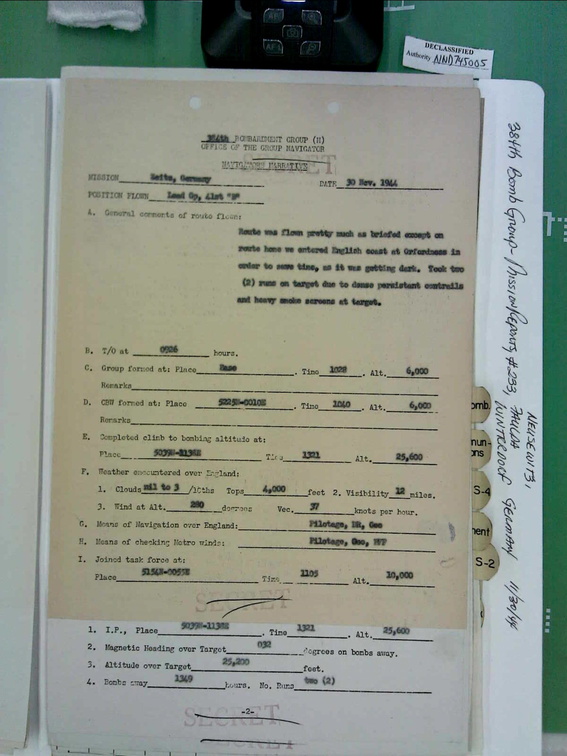 DECLASSIFIED
Authority NND745005
384th BOMBARDMENT GROUP (H)
OFFICE OF THE GROUP NAVIGATOR
NAVIGATORS NARRATIVE
SECRET
MISSION Zeitz, Germany DATE 30 Nov. 1944
POSITION FLOWN Lead Gp, 41st "B"
A. General comments of route flown:
Route was flown pretty much as briefed except on
route home we entered English coast at Orfordness in
order to save time, as it was getting dark. Took two
(2) runs on target due to dense persistant contrails
and heavy smoke screens at target.
B. T/O at 0926 hours.
C. Group formed at: Place Base. Time 1028. Alt. 6,000
Remarks
D. CBW formed at: Place 5225N-0010E. Time 1040. Alt. 6,000
Remarks
E. Completed climb to bombing altitude at:
Place 5039N-1138E Time 1321 Alt. 25,600
F. Weather encountered over England:
1. Clouds nil to 3 /10ths Tops 4,000 feet 2. Visibility 12 miles.
3. Wind at Alt. 280 degrees Vec. 37 knots per hour.
G. Means of Navigation over England: Pilotage, DR, Gee
H. Means of checking Metro winds: Pilotage, Gee, MFF
I. Joined task force at:
Place 5154N-0055E Time 1105 Alt. 10,000
SECRET
1. I.P., Place 5039N-1138E. Time 1321. Alt. 25,600
2. Magnetic Heading over Target 032 degrees on bombs away.
3. Altitude over Target 25,200 feet.
4. Bombs away 1349 hours. No. Runs two (2)
-2-
SECRET
SECRET
384th Bomb Group- Mission Reports, #233,
NEUSEWITZ,
GERMANY 11/30/44
omb.
mun-
ons
S-4
ment
S-2